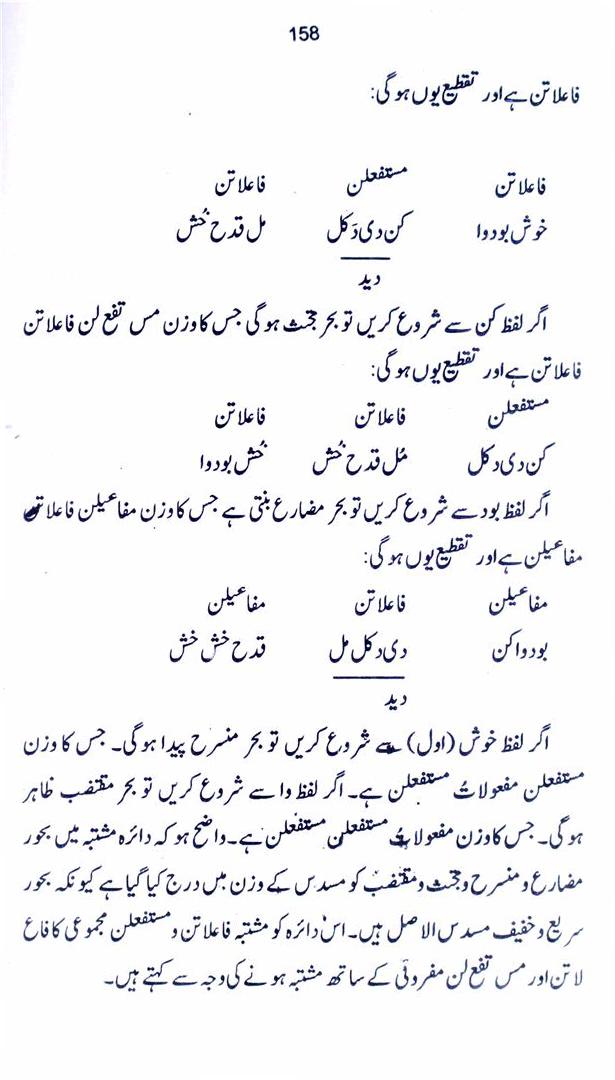 158
فاعلاتن ہے اور تقطیع یوں ہوگی:
فاعلاتن مستفعلن فاعلاتن
خوش بودوا کن دی دَکل مل قدح خُش
دید
اگر لفظ کن سے شروع کریں تو بحر مجتث ہوگی جس کا وزن مس تفع لن فاعلاتن
فاعلاتن ہے اور تقطیع یوں ہوگی:
مستفعلن فاعلاتن فاعلاتن
کن دی دکل مُل قدح خُش خُش بودوا
اگر لفظ بود سے شروع کریں تو بحر مضارع بنتی ہے جس کا وزن مفاعیلن فاعلاتن
مفاعیلن ہے اور تقطیع یوں ہوگی:
مفاعیلن فاعلاتن مفاعیلن
بودواکن دی دکل مل قدح خش خش
دید
اگر لفظ خوش (اول) سے شروع کریں تو بحر منسرح پیدا ہوگی۔ جس کا وزن
مستفعلن مفعولاتُ مستفعلن ہے۔ اگر لفظ وا سے شروع کریں تو بحر مقتضب ظاہر
ہوگی۔ جس کا وزن مفعولاتُ مستفعلن مستفعلن ہے۔ واضح ہو کہ دائرہ مشتبہ میں بحور
مضارع و منسرح و مجتث و مقتضب کو مسدس کے وزن میں درج کیا گیا ہے کیونکہ بحور
سریع و خفیف مسدس الاصل ہیں۔ اس دائرہ کو مشتبہ فاعلاتن و مستفعلن مجموعی کا فاع
لاتن اور مس تفع لن مفروقی کے ساتھ مشتبہ ہونے کی وجہ سے کہتے ہیں۔